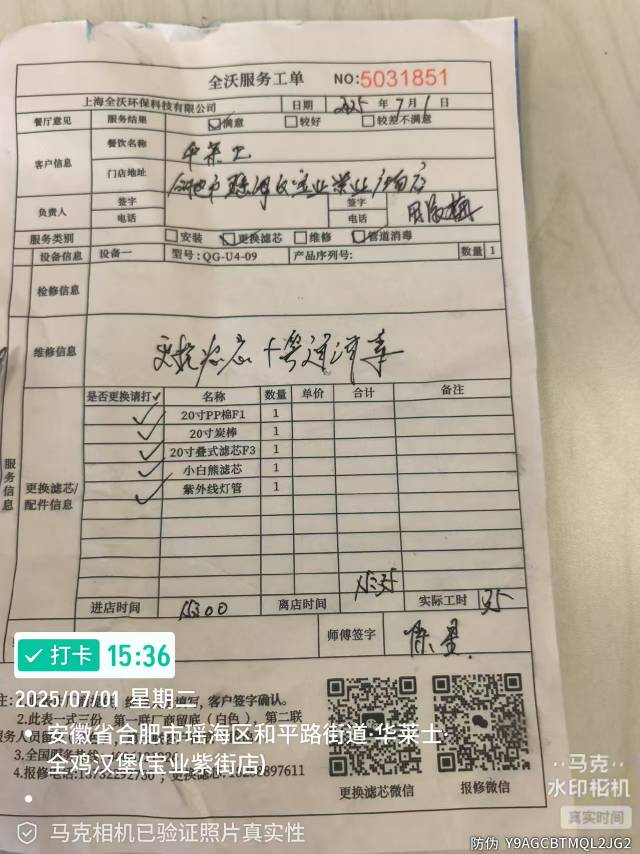 全沃服务工单 NO:5031851
上海全沃环保科技有限公司 日期 2025 年 7 月 1 日
餐厅意见 服务结果 满意 较好 较差不满意
客户信息 餐饮名称 华莱士
门店地址 合肥市瑶海区宝业
负责人 签字 签字
电话 电话
服务类别 安装 更换滤芯 维修 管道消毒
设备信息 设备一 型号:QG-U4-09 产品序列号: 数量 1
检修信息
维修信息 更换滤芯+管道消毒
服务信息
更换滤芯/配件信息
是否更换请打✓ 名称 数量 单价 合计 备注
✓ 20寸PP棉F1 1
✓ 20寸炭棒 1
✓ 20寸叠式滤芯F3 1
✓ 小白熊滤芯 1
✓ 紫外线灯管 1
进店时间 15:00 离店时间 15:35 实际工时 35
师傅签字
打卡 15:36
2025/07/01 星期二
填写, 客户签字确认。
2.此表一式三份, 第一联厂商留底(白色), 第二联
安徽省合肥市瑶海区和平路街道·华莱士·
全鸡汉堡(宝业紫街店)
3.全国服务热线
4.报修电话
更换滤芯微信 报修微信
马克相机已验证照片真实性
马克
水印相机
真实时间
防伪 Y9AGCBTMQL2JG2